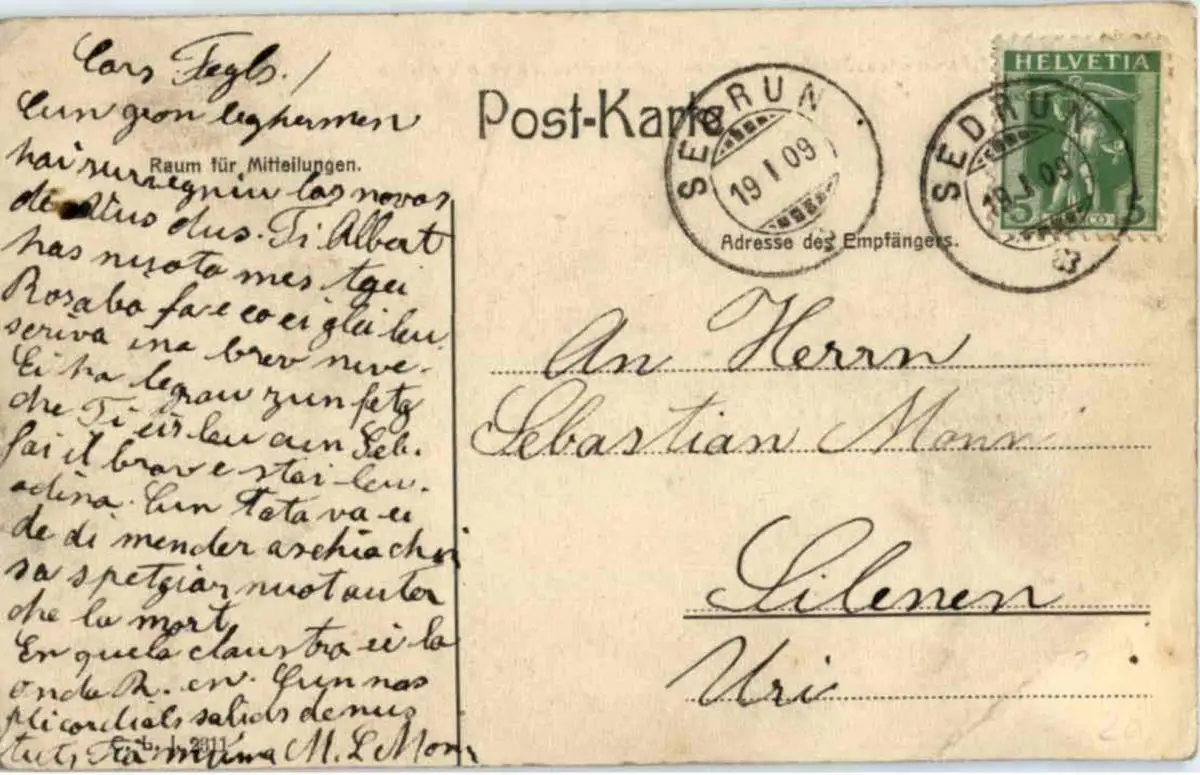 Cars Fegls!
Cun gron leghermen
Raum für Mitteilungen.
hai survegniu las novas
de Vus dus. Ti Albert
has
Rosaba
scriva ina brev
Ei ha legrau zun fetg
che Ti eis leu cun Seb.
fai il brav e stai leu.
adina. Cun Tata va ei
de di mender aschia ch'ei
sa spetgiar nuot auter
che la mort
En quela claustra ei la
onda R. en. Cun nos
pli cordials salids de nus
tuts, Tia mumma M. L. Monn
2311
Post-Karte
SEDRUN
19 I 09
SEDRUN
19 I 09
HELVETIA
5 5
Adresse des Empfängers.
An Herrn
Sebastian Monn
Silenen
Uri